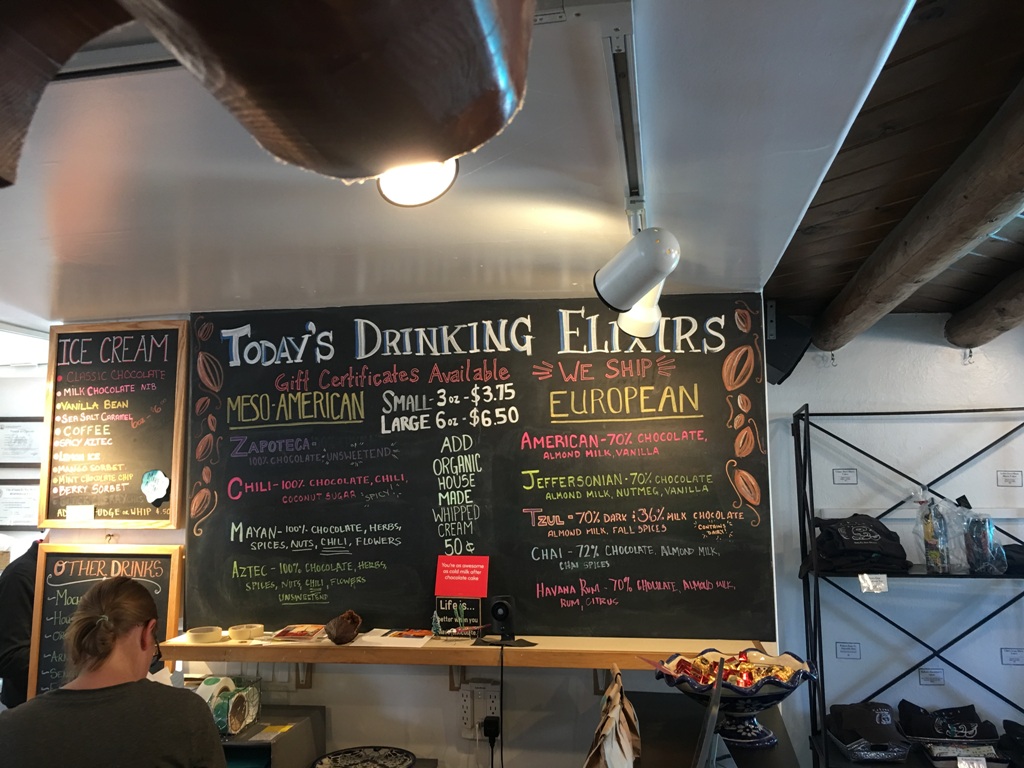 ICE CREAM
CLASSIC CHOCOLATE
MILK CHOCOLATE NIB
VANILLA BEAN
SEA SALT CARAMEL
COFFEE
SPICY AZTEC
LEMON ICE
MANGO SORBET
MINT CHOCOLATE CHIP
BERRY SORBET
OR WHIP
OTHER DRINKS
TODAY'S DRINKING ELIXIRS
Gift Certificates Available
WE SHIP
MESO-AMERICAN
ZAPOTECA-
100% CHOCOLATE, UNSWEETEND
CHILI-100% CHOCOLATE, CHILI,
COCONUT SUGAR "SPICY"
MAYAN-100% CHOCOLATE, HERBS,
SPICES, NUTS, CHILI, FLOWERS
AZTEC-100% CHOCOLATE, HERBS,
SPICES, NUTS, CHILI, FLOWERS
UNSWEETEND
SMALL-3oz-$3.75
LARGE 6oz-$6.50
ADD
ORGANIC
HOUSE
MADE
WHIPPED
CREAM
50¢
EUROPEAN
AMERICAN-70% CHOCOLATE,
ALMOND MILK, VANILLA
JEFFERSONIAN-70% CHOCOLATE
ALMOND MILK, NUTMEG, VANILLA
TZUL-70% DARK & 36% MILK CHOCOLATE
ALMOND MILK, FALL SPICES
CONTAINS DAIRY
CHAI-72% CHOCOLATE, ALMOND MILK,
CHAI SPICES
HAVANA RUM-70% CHOCLATE, ALMOND MILK,
RUM, CITRUS
You're as awesome
as cold milk after
chocolate cake
Life is...
better when you